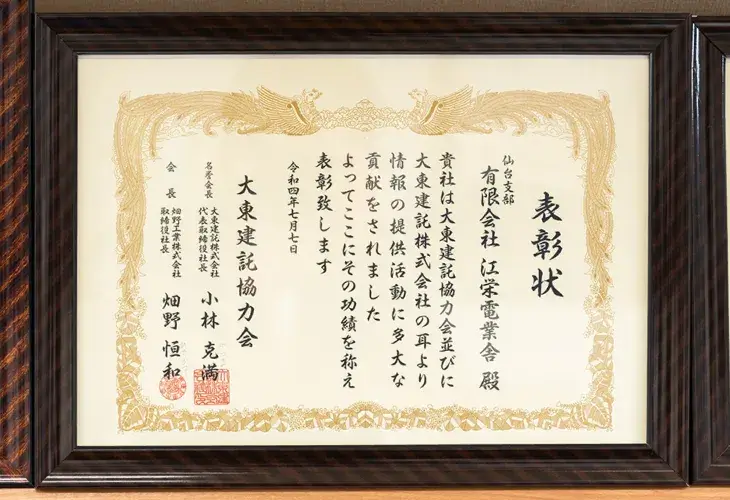 表彰状
仙台支部
有限会社 江栄電業舎 殿
貴社は大東建託協力会並びに
大東建託株式会社の耳より
情報の提供活動に多大な
貢献をされました
よってここにその功績を称え
表彰致します
令和四年七月七日
大東建託協力会
名誉会長 大東建託株式会社
代表取締役社長 小林 克満
会長 畑野工業株式会社
取締役社長 畑野 恒和